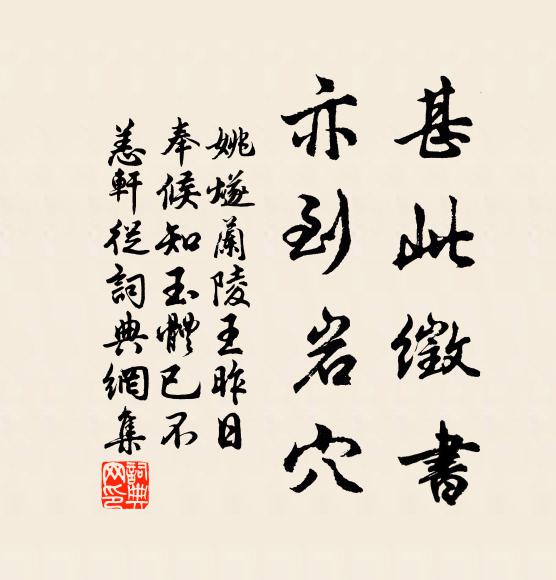 甚此徵書
亦到岩穴
姚燧蘭陵王昨日
奉候知玉體已不
恙軒從詞典網集
詞典网印